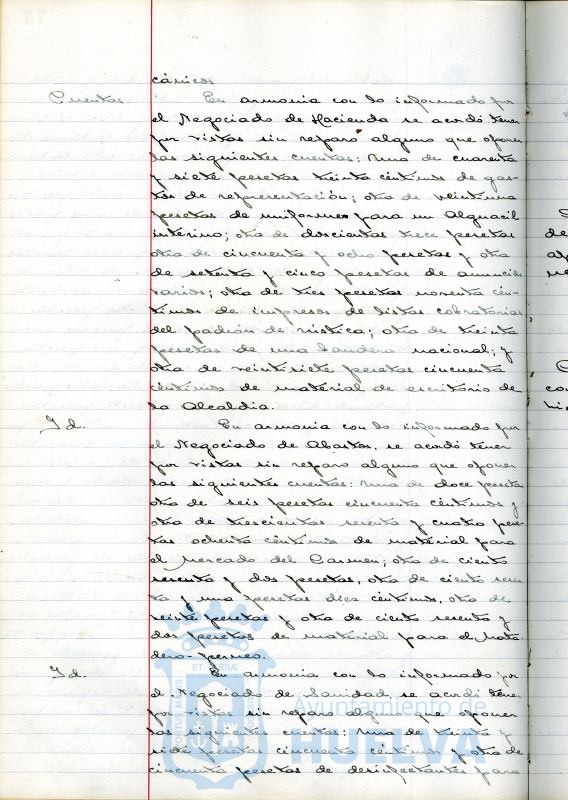 cánicos
Cuentas. En armonia con lo informado por
el Negociado de Hacienda se acordó tener
por vistas sin reparo alguno que oponer
las siguientes cuentas: Una de cuarenta
y siete pesetas treinta céntimos de gas-
tos de representación; otra de veintiuna
pesetas de uniformes para un Alguacil
interino; otra de doscientas trece pesetas
otra de cincuenta y ocho pesetas y otra
de setenta y cinco pesetas de anuncios
varios; otra de tres pesetas noventa cén-
timos de impresos de listas cobratorias
del padrón de rústica; otra de treinta
pesetas de una bandera nacional; y
otra de veintisiete pesetas cincuenta
céntimos de material de escritorio de
la Alcaldia.
Id. En armonia con lo informado por
el Negociado de Abastos, se acordó tener
por vistas sin reparo alguno que oponer
las siguientes cuentas: Una de doce pesetas
otra de seis pesetas cincuenta céntimos y
otra de trescientas sesenta y cuatro pese-
tas ochenta céntimos de material para
el Mercado del Carmen; otra de ciento
sesenta y dos pesetas, otra de ciento sesen
ta y una pesetas diez céntimos, otra de
veinte pesetas y otra de ciento sesenta y
dos pesetas de material para el Mata
dero-
Id. En armonia con lo informado por
el Negociado de Sanidad, se acordó tener
por vistas sin reparo alguno que oponer
las siguientes cuentas: Una de treinta y
siete pesetas cincuenta céntimos y otra de
cincuenta pesetas de desinfectantes para
Ayuntamiento de
HUELVA